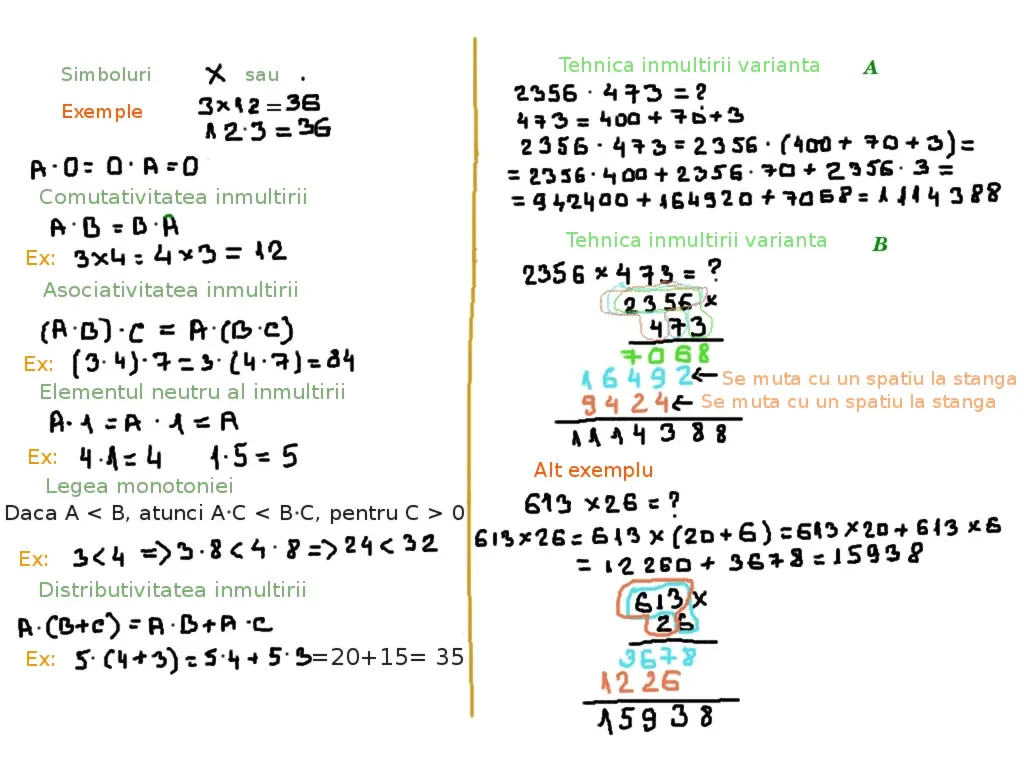 Simboluri X sau .
Exemple 3x12=36
12·3=36
A·0=0·A=0
Comutativitatea inmultirii
A·B=B·A
Ex: 3x4=4x3=12
Asociativitatea inmultirii
(A·B)·C=A·(B·C)
Ex: (3·4)·7=3·(4·7)=84
Elementul neutru al inmultirii
A·1=A ·1=A
Ex: 4·1=4 1·5=5
Legea monotoniei
Daca A < B, atunci A·C < B·C, pentru C > 0
Ex: 3<4 =>3·8<4·8=>24<32
Distributivitatea inmultirii
A·(B+C)=A·B+A·C
Ex: 5·(4+3)=5·4+5·3=20+15= 35
Tehnica inmultirii varianta A
2356·473=?
473=400+70+3
2356·473=2356·(400+70+3)=
=2356·400+2356·70+2356·3=
=942400+164920+7068=1114388
Tehnica inmultirii varianta B
2356x473=?
2356x
473
7068
16492← Se muta cu un spatiu la stanga
9424← Se muta cu un spatiu la stanga
1114388
Alt exemplu
613x26=?
613x26=613x(20+6)=613x20+613x6
=12260+3678=15938
613x
26
3678
1226
15938